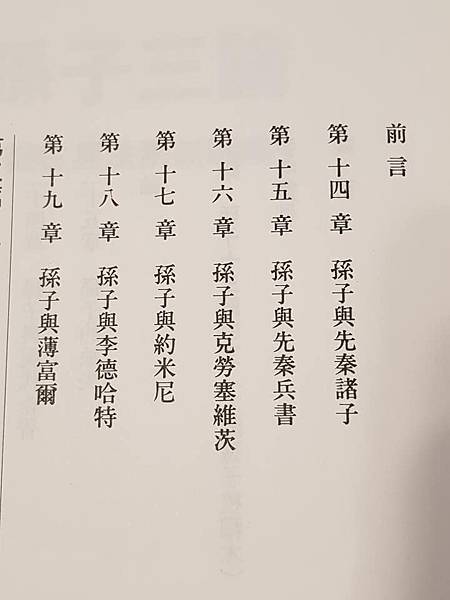 前言
第十四章 孫子與先秦諸子
第十五章 孫子與先秦兵書
第十六章 孫子與克勞塞維茨
第十七章 孫子與約米尼
第十八章 孫子與李德哈特
第十九章 孫子與薄富爾